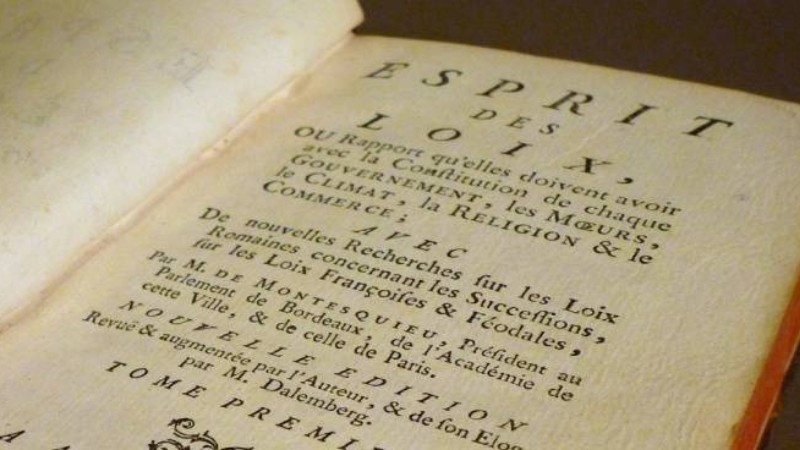 ESPRIT
DES
LOIX,
OU Rapport qu'elles doivent avoir
avec la Conſtitution de chaque
GOUVERNEMENT, les MŒURS,
le CLIMAT, la RELIGION & le
COMMERCE;
AVEC
De nouvelles Recherches ſur les Loix
Romaines concernant les Succeſſions,
ſur les Loix Françoiſes & Féodales,
Par M. DE MONTESQUIEU, Préſident au
Parlement de Bordeaux, de l'Académie de
cette Ville, & de celle de Paris.
NOUVELLE EDITION
Revuë & augmentée par l'Auteur, & de ſon Elog
par M. Dalemberg.
TOME PREMI